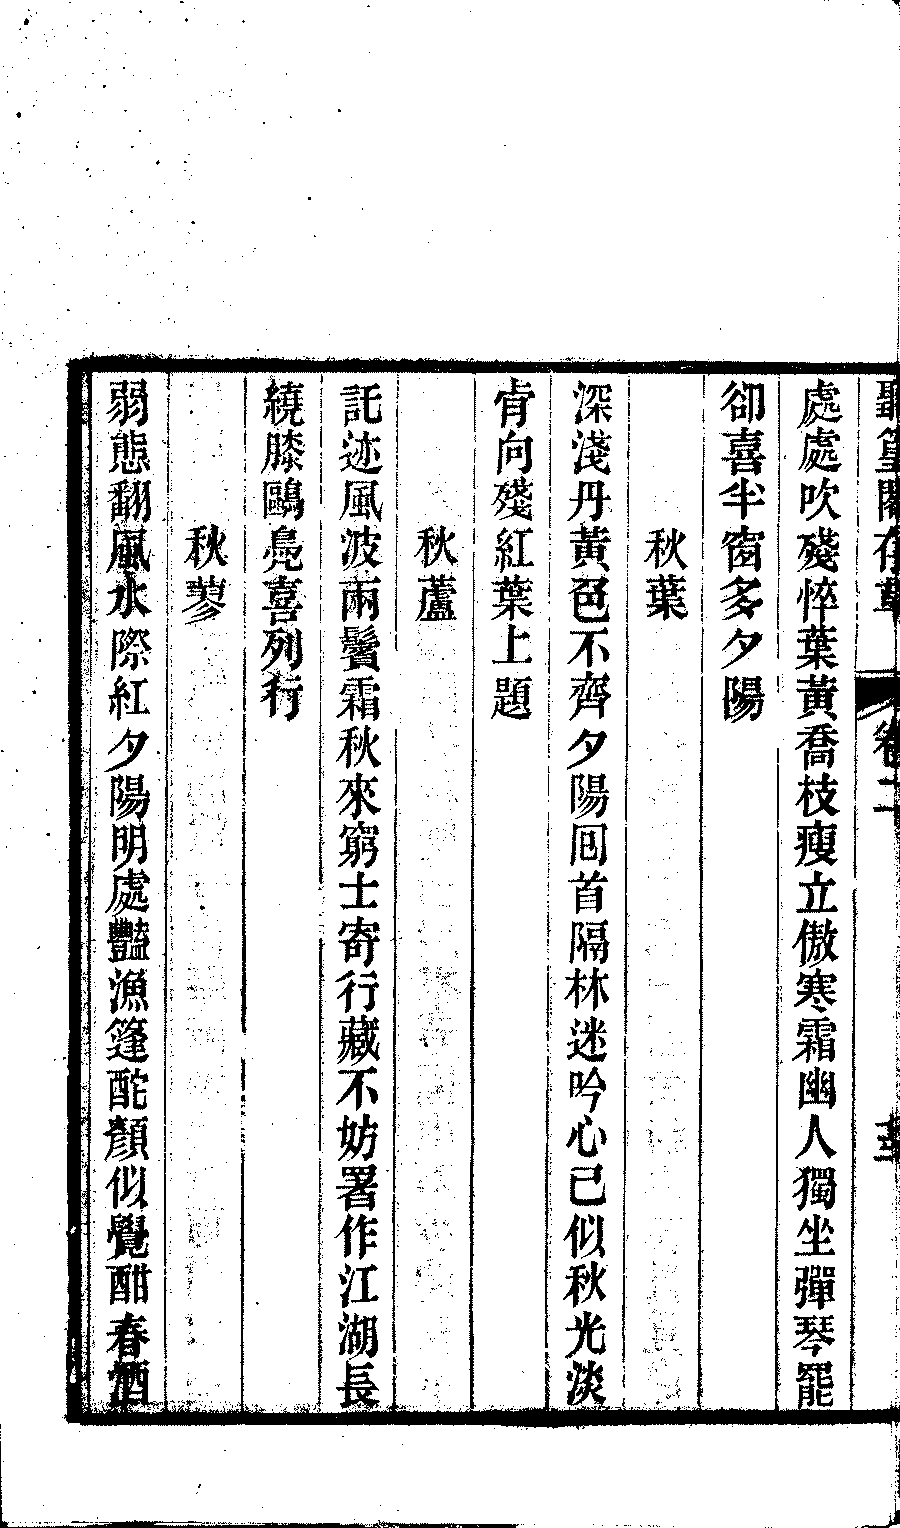 聽篁閣存草
卷二
處處吹殘悴葉黃喬枝瘦立傲寒霜幽人獨坐彈琴罷
卻喜半窗多夕陽
秋葉
深淺丹黃色不齊夕陽囘首隔林迷吟心已似秋光淡
肯向殘紅葉上題
秋蘆
託迹風波兩鬢霜秋來窮士寄行藏不妨署作江湖長
繞膝鷗鳧喜列行
秋蓼
弱態翻風水際紅夕陽明處豔漁篷酡顏似覺酣春酒